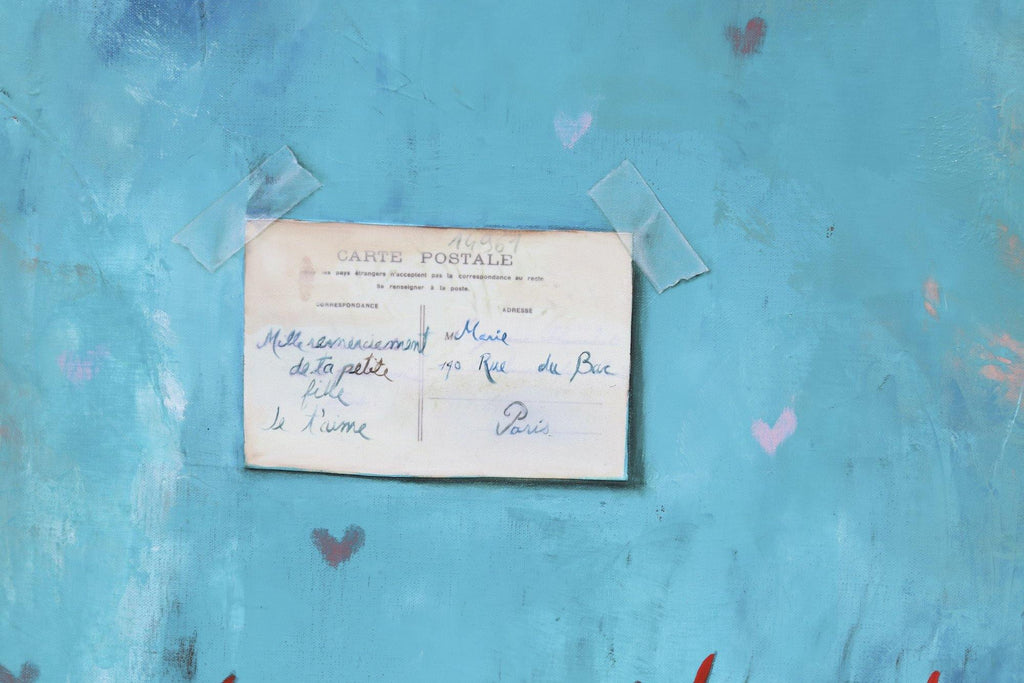 14961
CARTE POSTALE
les pays étrangers n'acceptent pas la correspondance au recto
Se renseigner à la poste.
CORRESPONDANCE
Mille remerciement
de ta petite
fille
Je t'aime
ADRESSE
M Marie
190 Rue du Bac
Paris